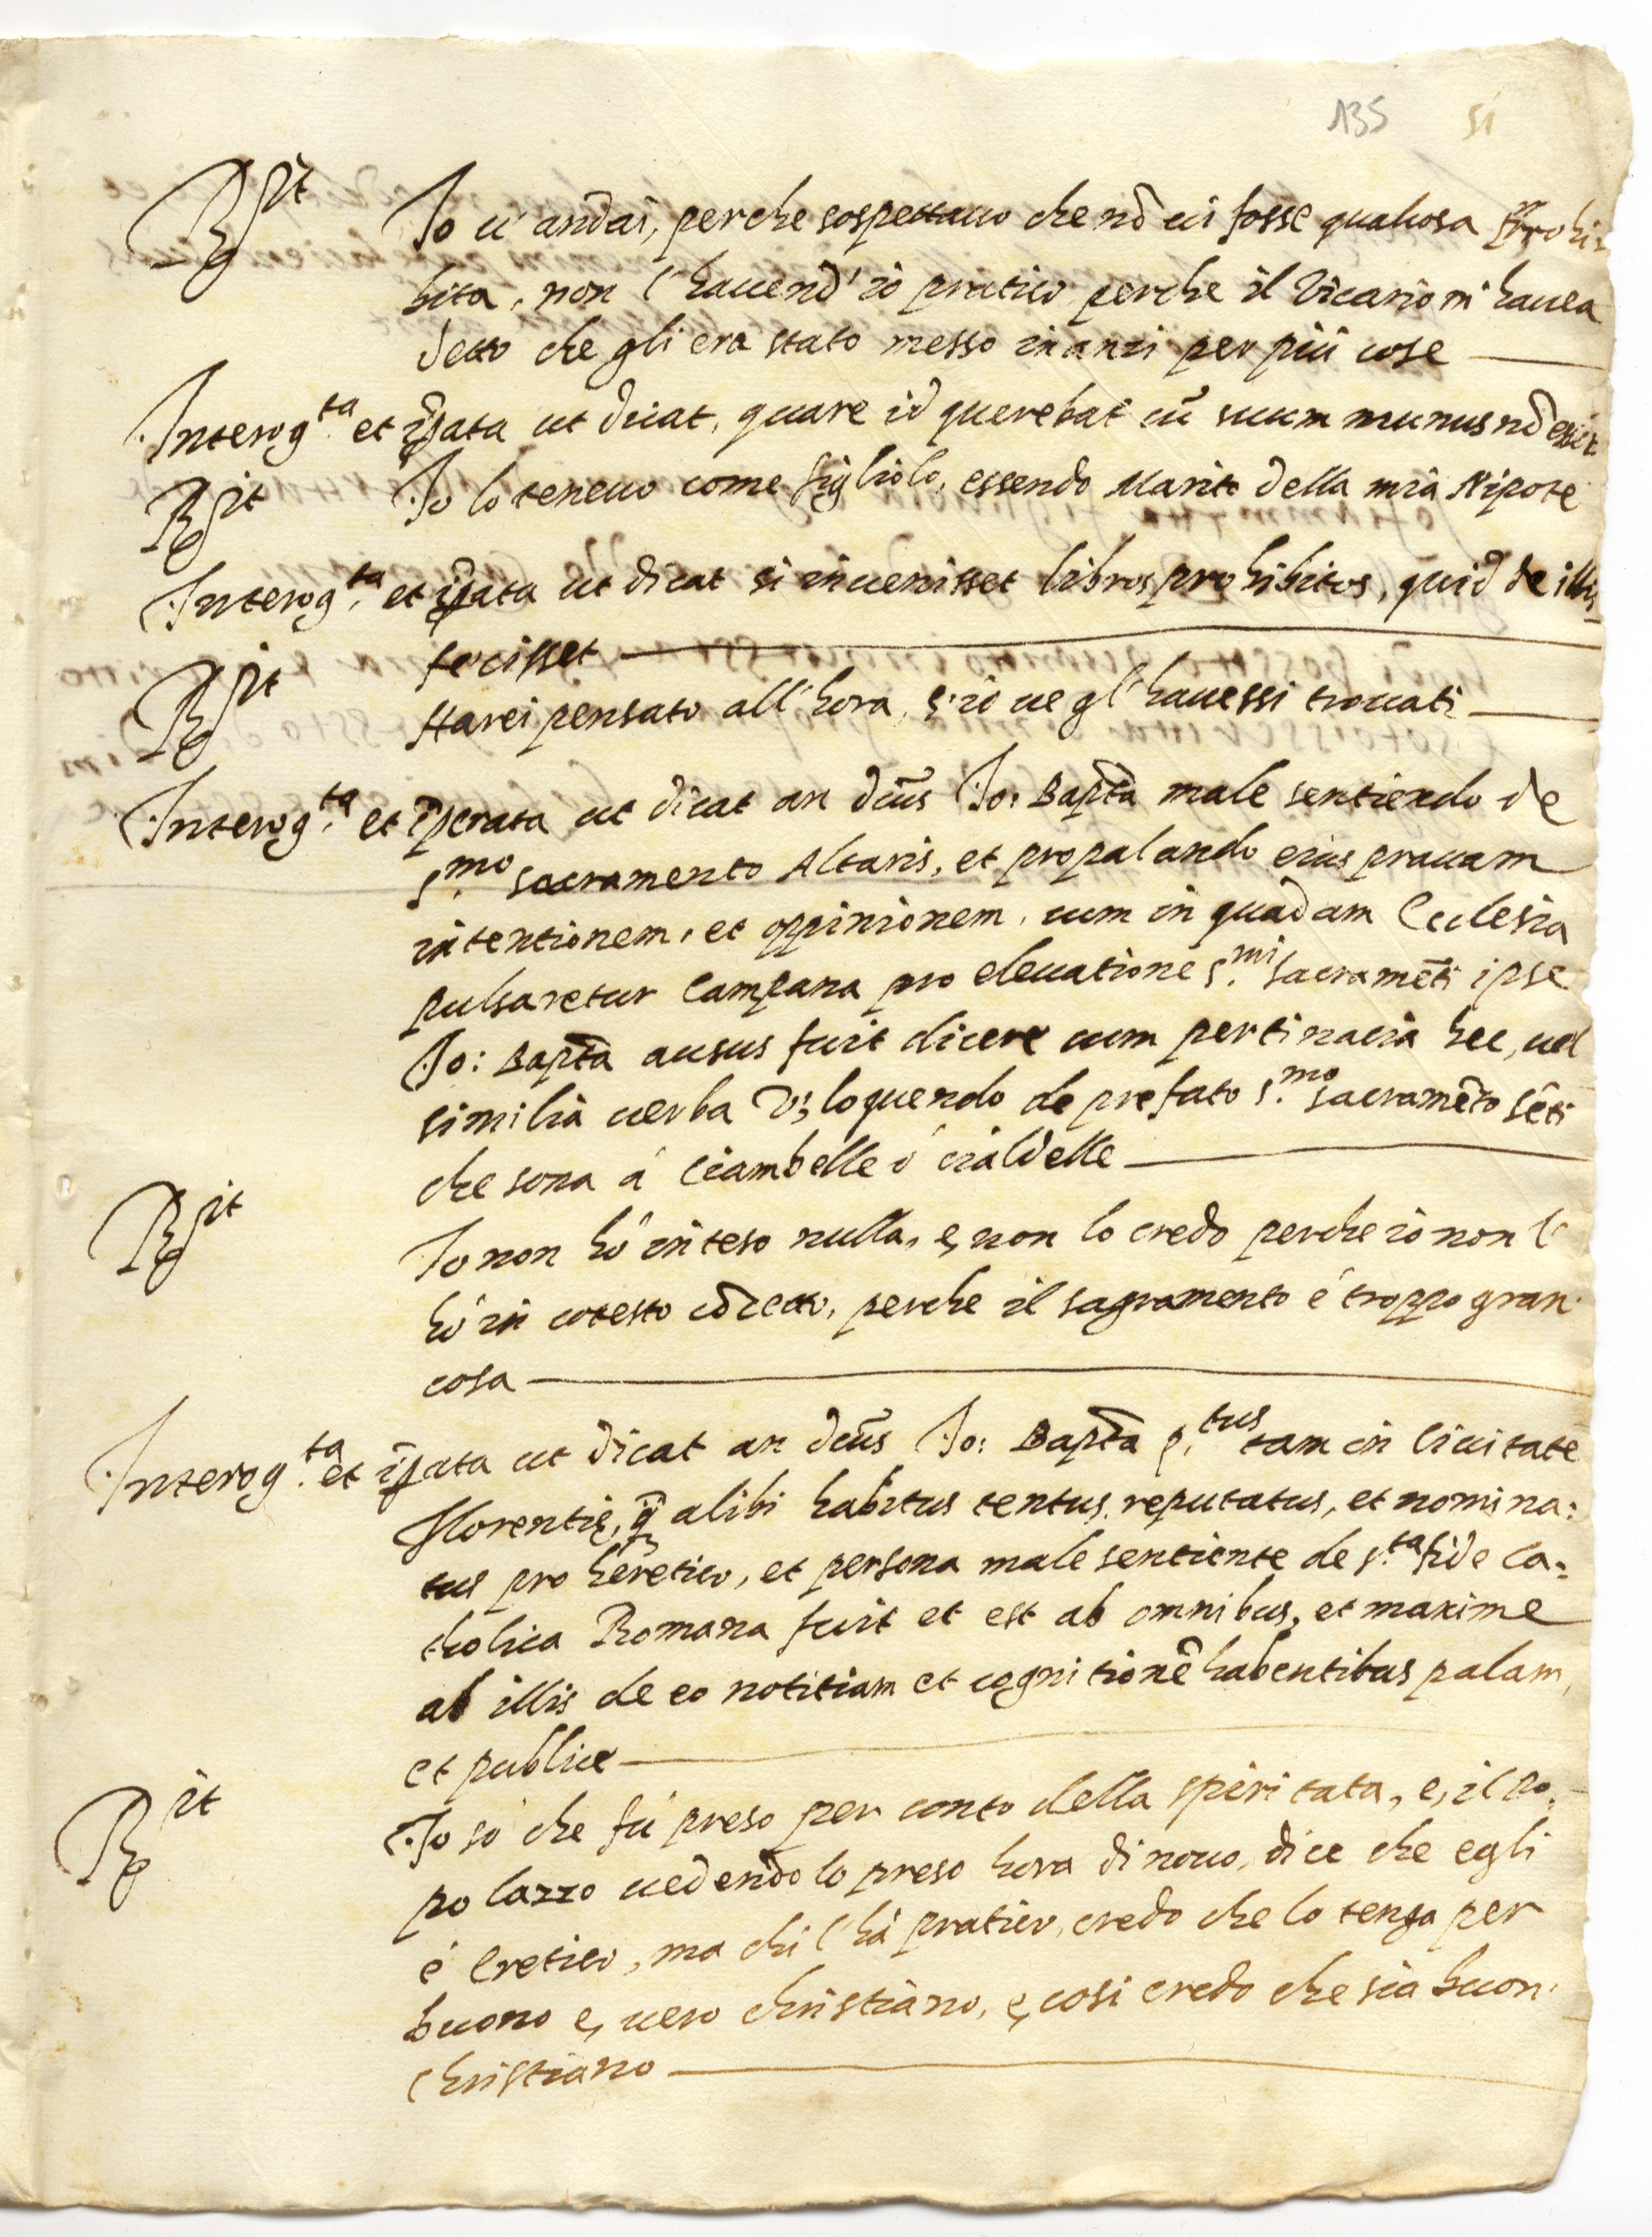 135 51
R.it Io u' andai, perche sospettauo che nō ui fosse qualcosa Prohi:
bita, non l'hauend' io pratico perche il Vicario m' hauea
detto che gli era stato messo inanzi per più cose
Interog.ta et ip̄ata ut dicat, quare id querebat cū suum munus nō esset
R.it Io lo teneuo come figliolo, essendo Marito della mia Nipote
Interog.ta et ip̄ata ut dicat si inuenisset libros prohibitos, quid de illis
fecisset
R.it starei pensato all' hora, s'io ue gl' hauessi trouati
Interog.ta et ip̄erata ut dicat an dc̄us Io: Bap̄ta male sentiendo de
s.mo sacramento Altaris, et propalando eius prauam
intentionem, et oppinionem, cum in quadam Ecclesia
pulsaretur Campana pro eleuatione s.mi sacramēti ipse
Io: Bap̄ta ausus fuit dicere cum pertinacia hec, uel
similia uerba vz loquendo de prefato s.mo sacramēto sēti
che sona à Ciambelle ò cialdelle
R.it Io non hò inteso nulla, e, non lo credo perche io non l'
hò in cotesto cōcetto, perche il sagramento è troppo gran
cosa
Interog.ta et ip̄ata ut dicat an dc̄us Io: Bap̄ta p.tus tam in Ciuitate
Florentię, q̄ alibi habitus tentus, reputatus, et nomina:
tus pro heretico, et persona male sentiente de s.ta fide Ca:
tholica Romana fuit et est ab omnibus, et maxime
ab illis de eo notitiam et cognitionē habentibus palam,
et publice
R.it Io sò che fù preso per conto della spiritata, e, il po:
polazzo uedendolo preso hora di nouo, dice che egli
è Eretico, ma chi l'hà pratico, credo che lo tenga per
buono e, uero christiano, e, cosi credo che sia buon
Christiano